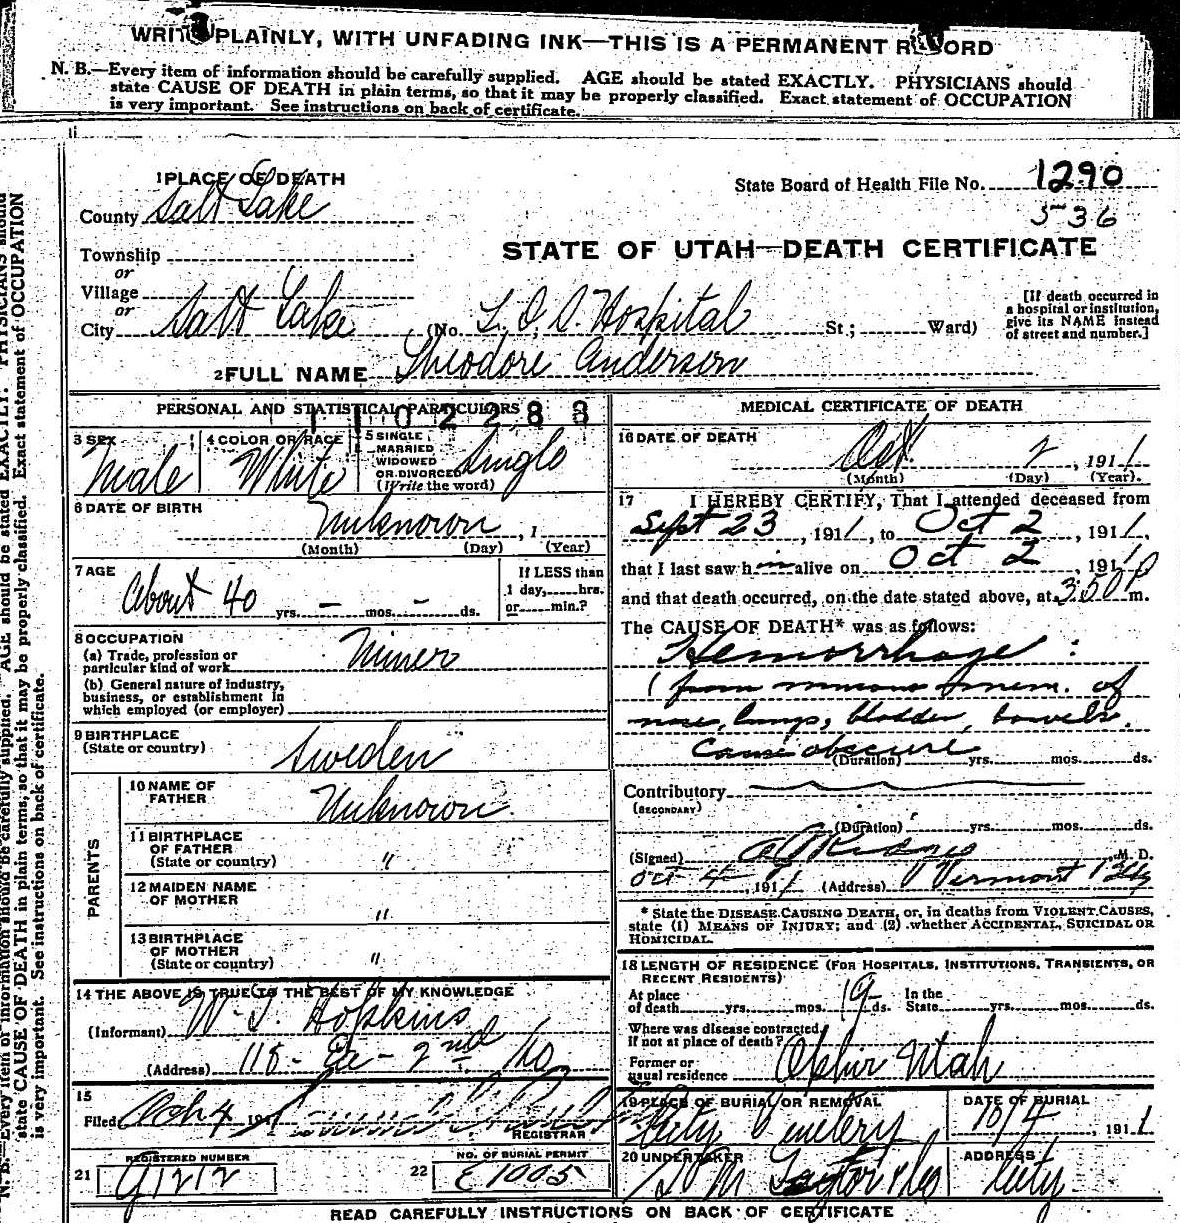 WRITE PLAINLY, WITH UNFADING INK—THIS IS A PERMANENT RECORD
N. B.—Every item of information should be carefully supplied. AGE should be stated EXACTLY. PHYSICIANS should
state CAUSE OF DEATH in plain terms, so that it may be properly classified. Exact statement of OCCUPATION
is very important. See instructions on back of certificate.
1 PLACE OF DEATH
County Salt Lake
Township
or
Village
or
City Salt Lake
State Board of Health File No. 1290
536
STATE OF UTAH—DEATH CERTIFICATE
(No. L. D. S. Hospital St.; Ward)
[If death occurred in
a hospital or institution,
give its NAME instead
of street and number.]
2 FULL NAME Theodore Anderson
PERSONAL AND STATISTICAL PARTICULARS
11102288
3 SEX
Male
4 COLOR OR RACE
White
5 SINGLE
MARRIED
WIDOWED
OR DIVORCED
(Write the word)
Single
6 DATE OF BIRTH
Unknown , 1
(Month) (Day) (Year)
7 AGE
About 40 yrs. – mos. – ds.
If LESS than
1 day, hrs.
or min.?
8 OCCUPATION
(a) Trade, profession or
particular kind of work Miner
(b) General nature of industry,
business, or establishment in
which employed (or employer)
9 BIRTHPLACE
(State or country) Sweden
PARENTS
10 NAME OF
FATHER Unknown
11 BIRTHPLACE
OF FATHER
(State or country) "
12 MAIDEN NAME
OF MOTHER "
13 BIRTHPLACE
OF MOTHER
(State or country) "
14 THE ABOVE IS TRUE TO THE BEST OF MY KNOWLEDGE
(Informant) W. J. Hopkins
(Address) 118 - E - 2nd So
15
Filed Oct 4 191
REGISTRAR
21 REGISTERED NUMBER
G1212
22 NO. OF BURIAL PERMIT
E1005
MEDICAL CERTIFICATE OF DEATH
16 DATE OF DEATH
Oct. 2, 1911
(Month) (Day) (Year).
17 I HEREBY CERTIFY, That I attended deceased from
Sept 23, 1911, to Oct 2, 1911,
that I last saw him alive on Oct 2, 1911
and that death occurred, on the date stated above, at 3:50 P m.
The CAUSE OF DEATH* was as follows:
Hemorrhage :
(from mucous mem. of
nose, lungs, bladder, bowels.
Cause obscure
(Duration) yrs. mos. ds.
Contributory
(SECONDARY)
(Duration) yrs. mos. ds.
(Signed) M. D.
Oct 4 1911 (Address) Vermont Bldg
* State the DISEASE CAUSING DEATH, or, in deaths from VIOLENT CAUSES,
state (1) MEANS OF INJURY; and (2) whether ACCIDENTAL, SUICIDAL OR
HOMICIDAL.
18 LENGTH OF RESIDENCE (FOR HOSPITALS, INSTITUTIONS, TRANSIENTS, OR
RECENT RESIDENTS)
At place
of death yrs. mos. 19 ds.
In the
State yrs. mos. ds.
Where was disease contracted,
if not at place of death?
Former or
usual residence Ophir Utah
19 PLACE OF BURIAL OR REMOVAL
City Cemetery
DATE OF BURIAL
10/4, 1911
20 UNDERTAKER
S M Taylor & Co
ADDRESS
City
READ CAREFULLY INSTRUCTIONS ON BACK OF CERTIFICATE